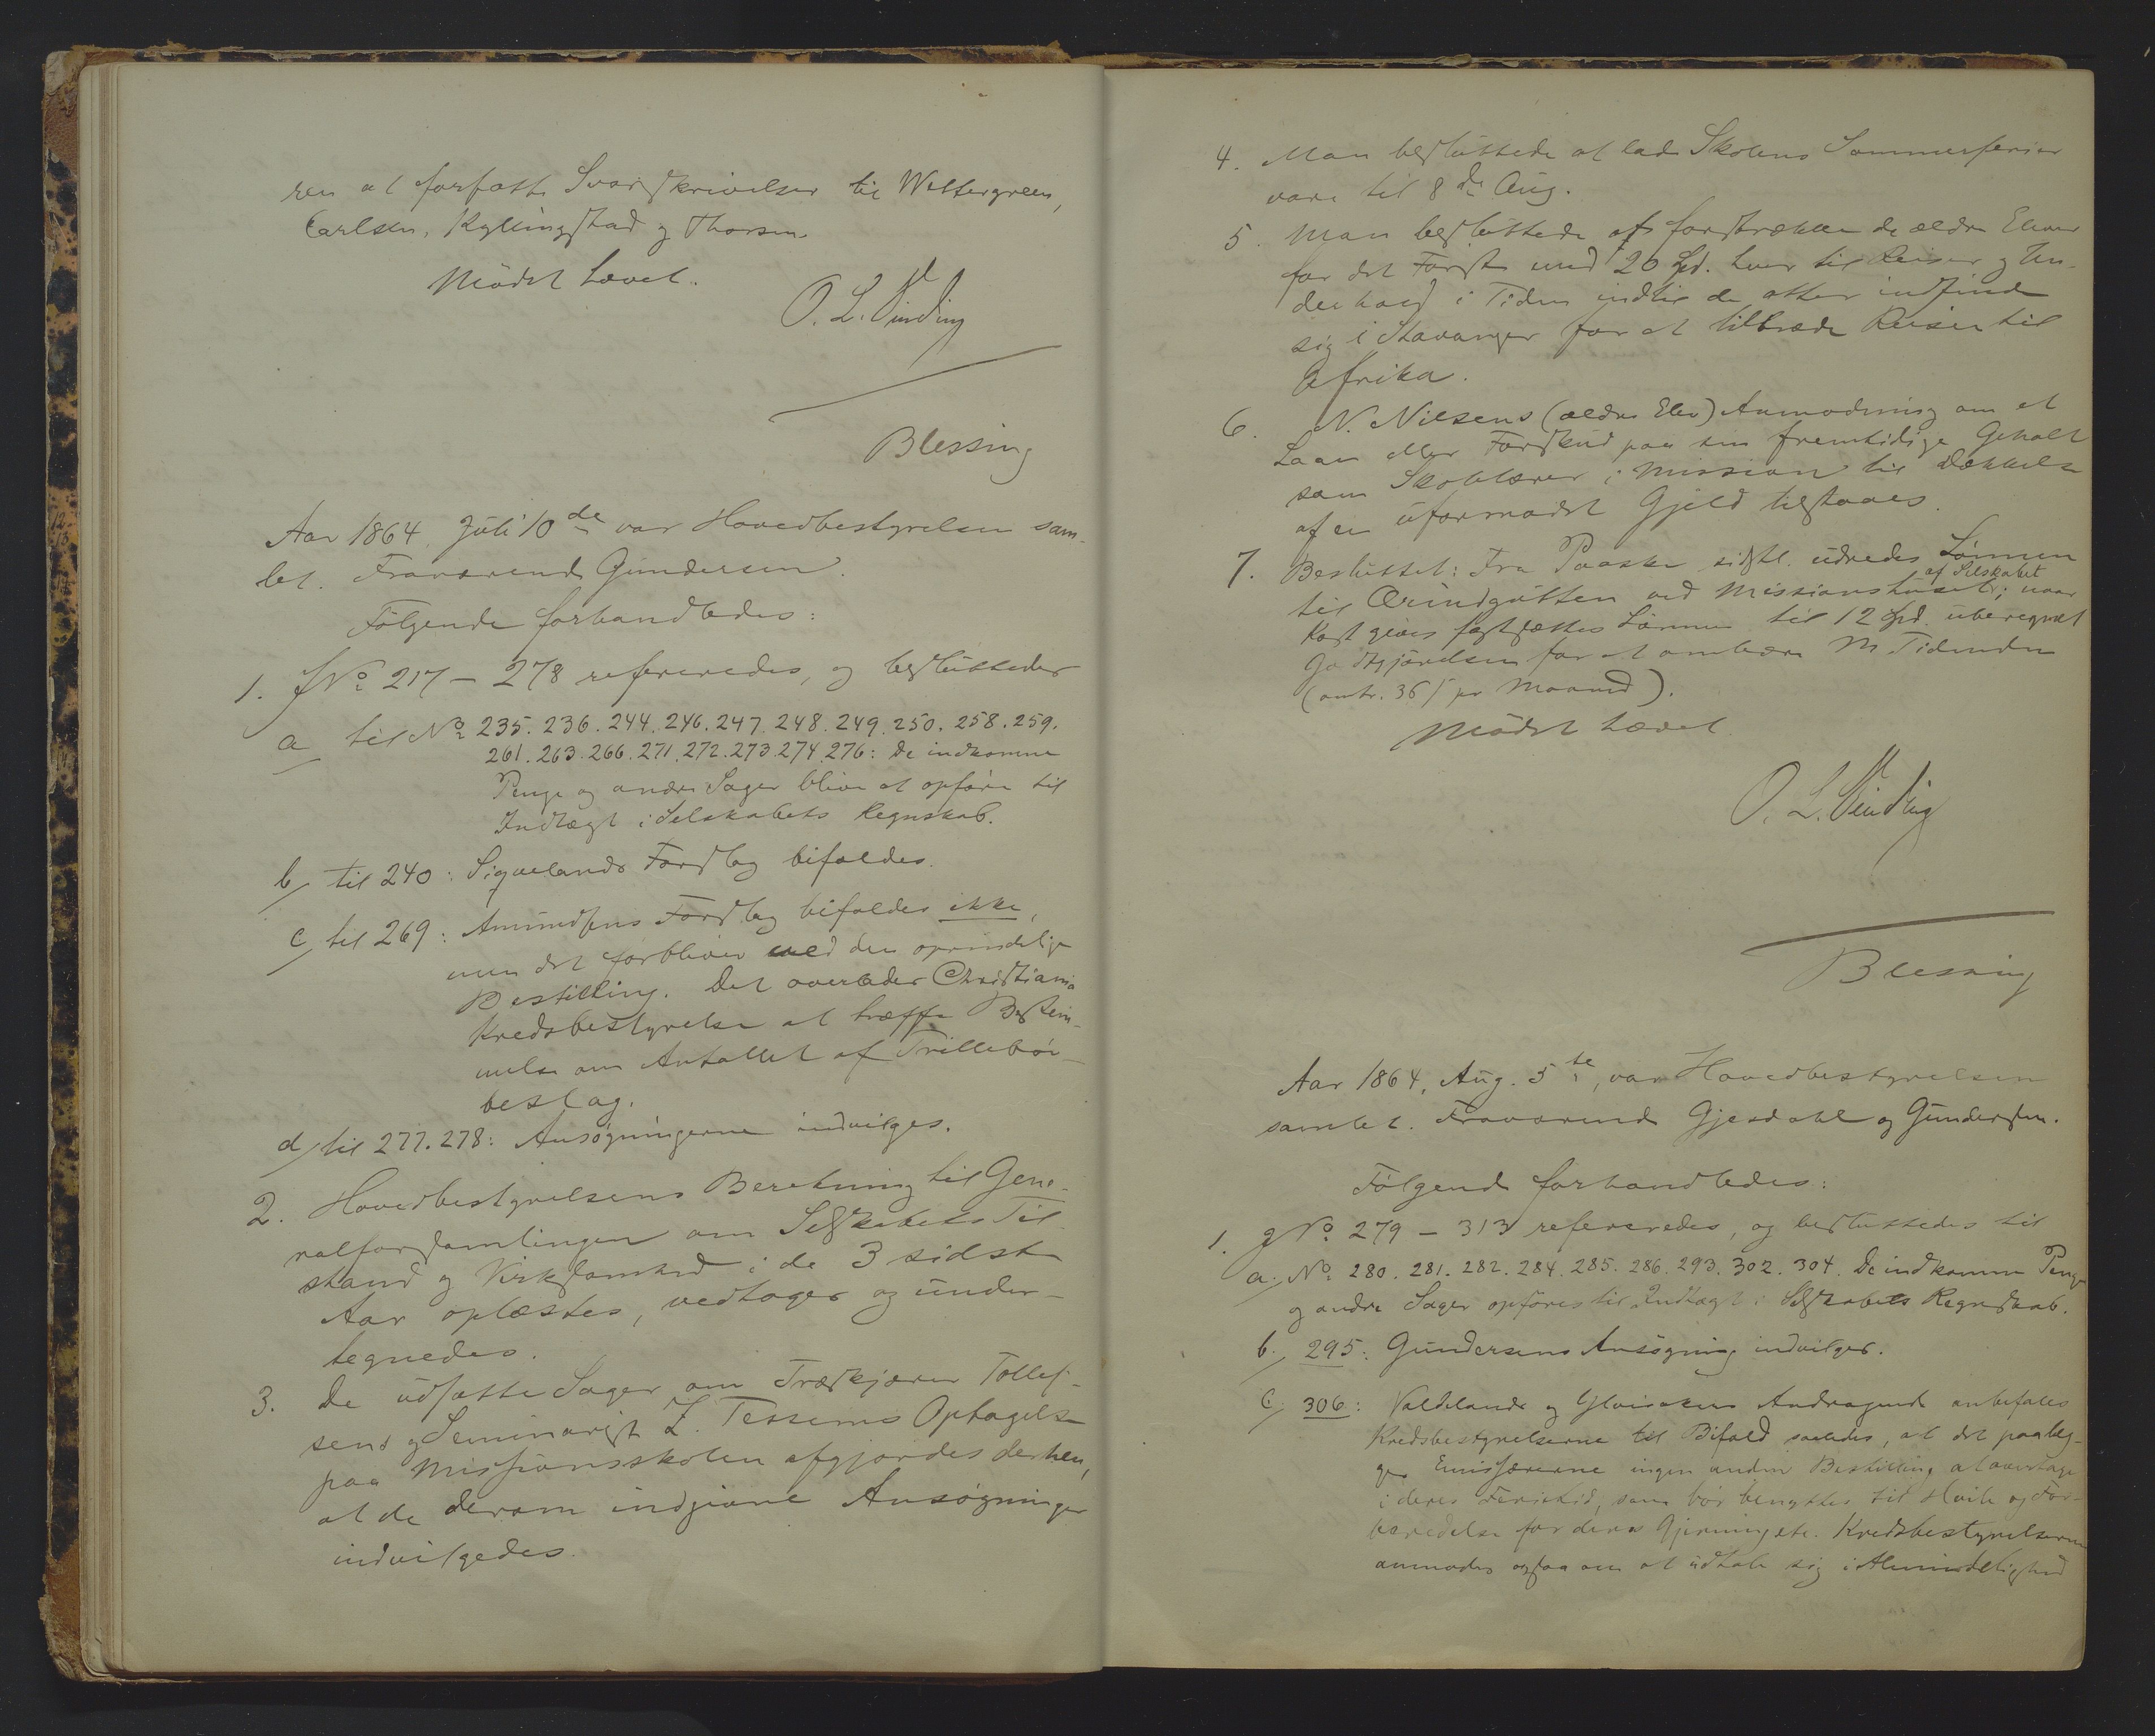 ren at forfatte Svarskrivelser til Wettergreen,
Carlsen, Kyllingstad og Thorsen
Mödet hævet.
O. L. Vinding
Blessing
Aar 1864, Juli 10de var Hovedbestyrelsen sam-
let. Fraværende Gundersen.
Følgende forhandledes:
1. J No 217 - 278 refereredes, og besluttedes
a/ til No 235. 236. 244. 246. 247. 248. 249. 250. 258. 259.
261. 263. 266. 271. 272. 273. 274. 276: De indkomne
Penge og andre Sager blive at opföre til
Indtægt i Selskabets Regnskab.
b/ til 240: Sigvelands Forslag bifaldes.
c/ til 269: Amundsens Forslag bifaldes ikke,
men det forbliver ved den oprindelige
Bestilling. Det overlades Christiania
Kredsbestyrelse at træffe Bestem-
melse om Antallet af Trillebör-
beslag.
d/ til 277. 278: Ansøgningerne indvilges.
2. Hovedbestyrelsens Beretning til Gene-
ralforsamlingen om Selskabets Til-
stand og Virksomhed i de 3 sidste
Aar oplæstes, vedtoges og under-
tegnedes.
3. De udsatte Sager om Træskjærer Tollef-
sens og Seminarist L. Tessems Optagelse
paa Missionsskolen afgjordes derhen,
at de derom indgivne Ansøgninger
indvilgedes.
4. Man besluttede at lade Skolens Sommerferier
vare til 8de Aug.
5. Man besluttede at forstrække de ældre Elever
for det Første med 20 Spd. hver til Reiser og Un-
derhold i Tiden indtil de atter indfinde
sig i Stavanger for at tiltræde Reisen til
Afrika.
6. N. Nilsens (ældre Elev) Anmodning om et
Laan eller Forskud paa sin fremtidige Gehalt
som Skolelærer i Mission til Dækkelse
af en uformodet Gjeld tilstaaes.
7. Besluttet: Fra Paaske sidstl. udredes Lönnen
af Selskabet
til Ærindgutten ved Missionshuset; naar
Kost gives fastsættes Lönnen til 12 Spd. uberegnet
Godtgjörelsen for at ombære M. Tidende
(omtr. 36 s pr Maaned).
Mödet hævet
O. L. Vinding
Blessing
Aar 1864, Aug. 5te, var Hovedbestyrelsen
samlet. Fraværende Gjesdahl og Gundersen.
Følgende forhandledes:
1. J No 279 - 313 refereredes, og besluttedes til
a. No 280. 281. 282. 284. 285. 286. 293. 302. 304. De indkomne Penge
og andre Sager opföres til Indtægt i Selskabets Regnskab.
b./ 295: Gundersens Ansøgning indvilges.
c./ 306: Valdelands og Andragende anbefales
Kredsbestyrelserne til Bifald saaledes, at det paalæg-
ges Emissærerne ingen anden Bestilling at overtage
i deres Ferietid, som bör benyttes til Hvile og For-
beredelse for deres Gjerning etc. Kredsbestyrelserne
anmodes ogsaa om at udtale sig i Almindelighed